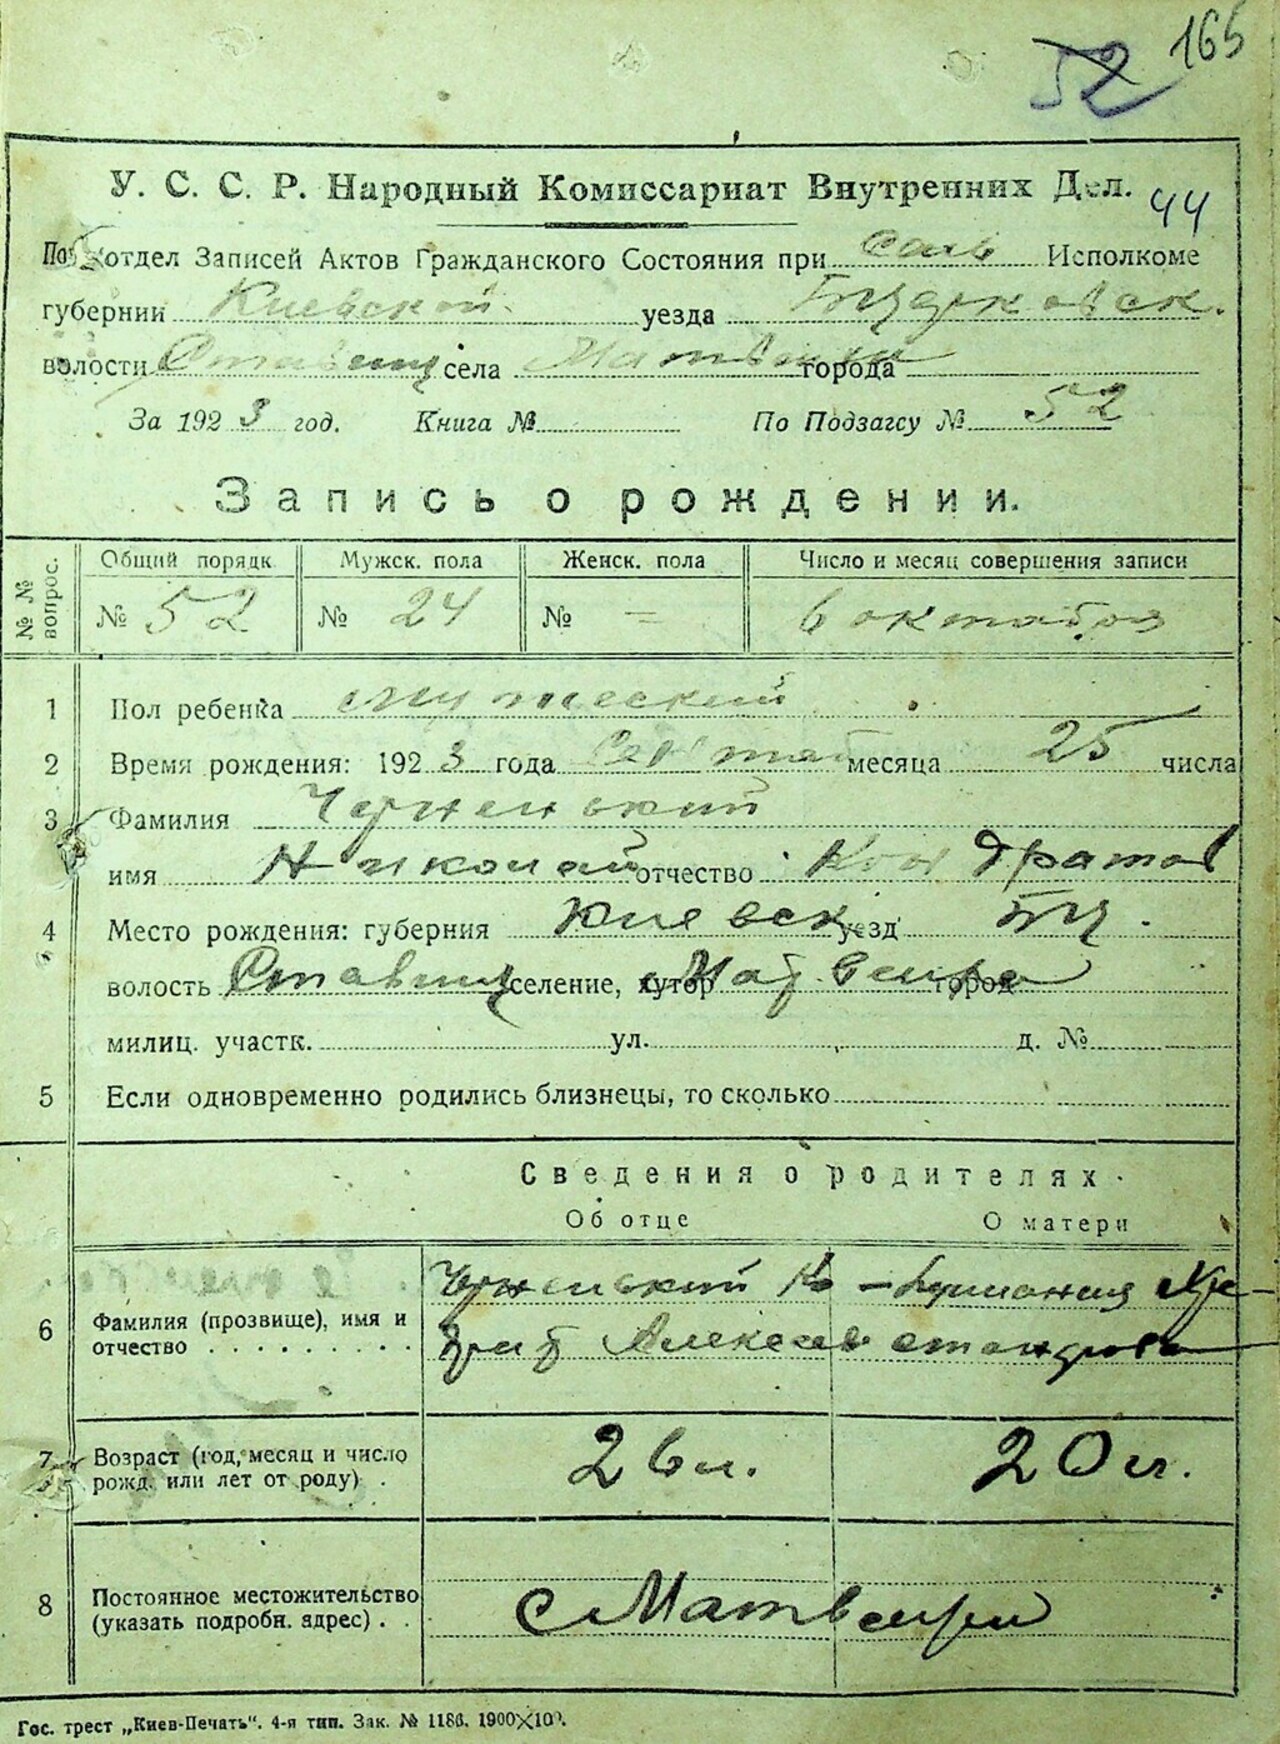 165
52
У. С. С. Р. Народный Комиссариат Внутренних Дел.
44
Подотдел Записей Актов Гражданского Состояния при Сель Исполкоме
губернии Киевской уезда Бцерковск.
волости Ставищ села города
За 1923 год. Книга № По Подзагсу № 52
Запись о рождении.
№ № вопрос.
Общий порядк. Мужск. пола Женск. пола Число и месяц совершения записи
№ 52 № 24 № — 6 октября
1 Пол ребенка мужеский
2 Время рождения: 1923 года Сентяб месяца 25 числа
3 Фамилия Черненький
имя Николай отчество Кондратов
4 Место рождения: губерния Киевск уезд БЦ.
волость Ставищ селение, хутор город
милиц. участк. ул. д. №
5 Если одновременно родились близнецы, то сколько
Сведения о родителях.
Об отце О матери
Черненький Ко-
6 Фамилия (прозвище), имя и
отчество Алексеев
7 Возраст (год, месяц и число 26 л. 20 л.
рожд. или лет от роду)
8 Постоянное местожительство с
(указать подробн. адрес)
Гос. трест „Киев-Печать“. 4-я тип. Зак. № 1186. 1900×100.